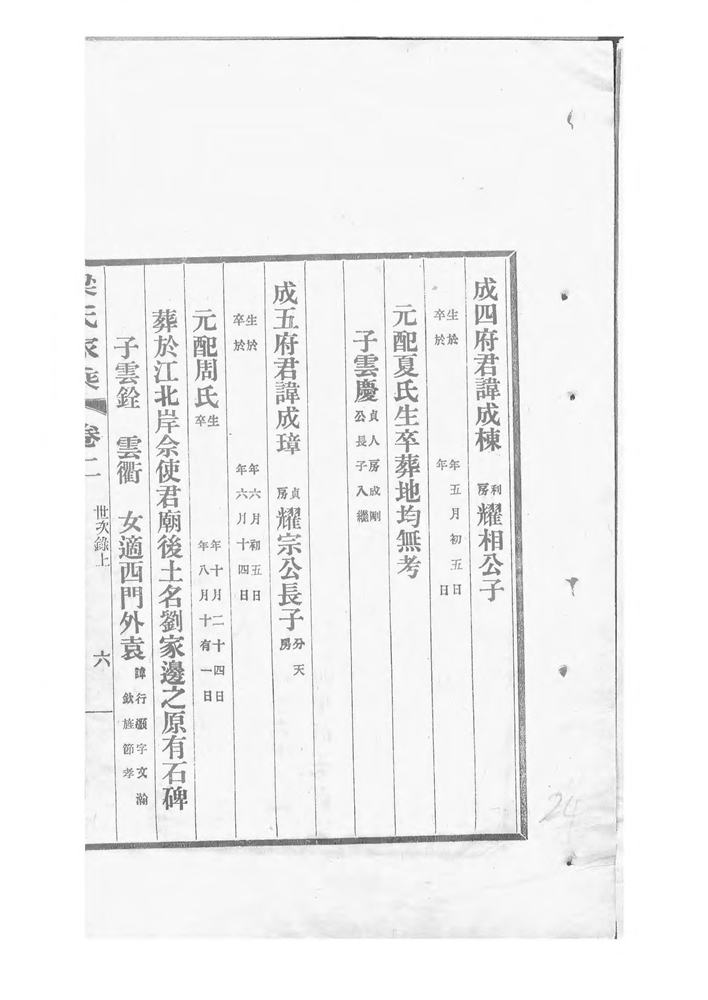 成四府君諱成棟 利房 耀相公子
生於 年五月初五日
卒於 年 日
元配夏氏生卒葬地均無考
子雲慶 貞人房成剛公長子入繼
成五府君諱成璋 貞房 耀宗公長子 分天房
生於 年六月初五日
卒於 年六月十四日
元配周氏 生 年十月二十四日
卒 年八月十有一日
葬於江北岸佘使君廟後土名劉家邊之原有石碑
子雲銓 雲衢 女適西門外袁 諱行灝字文瀚 欽旌節孝
梁氏家乘 卷二 世次錄上 六
24